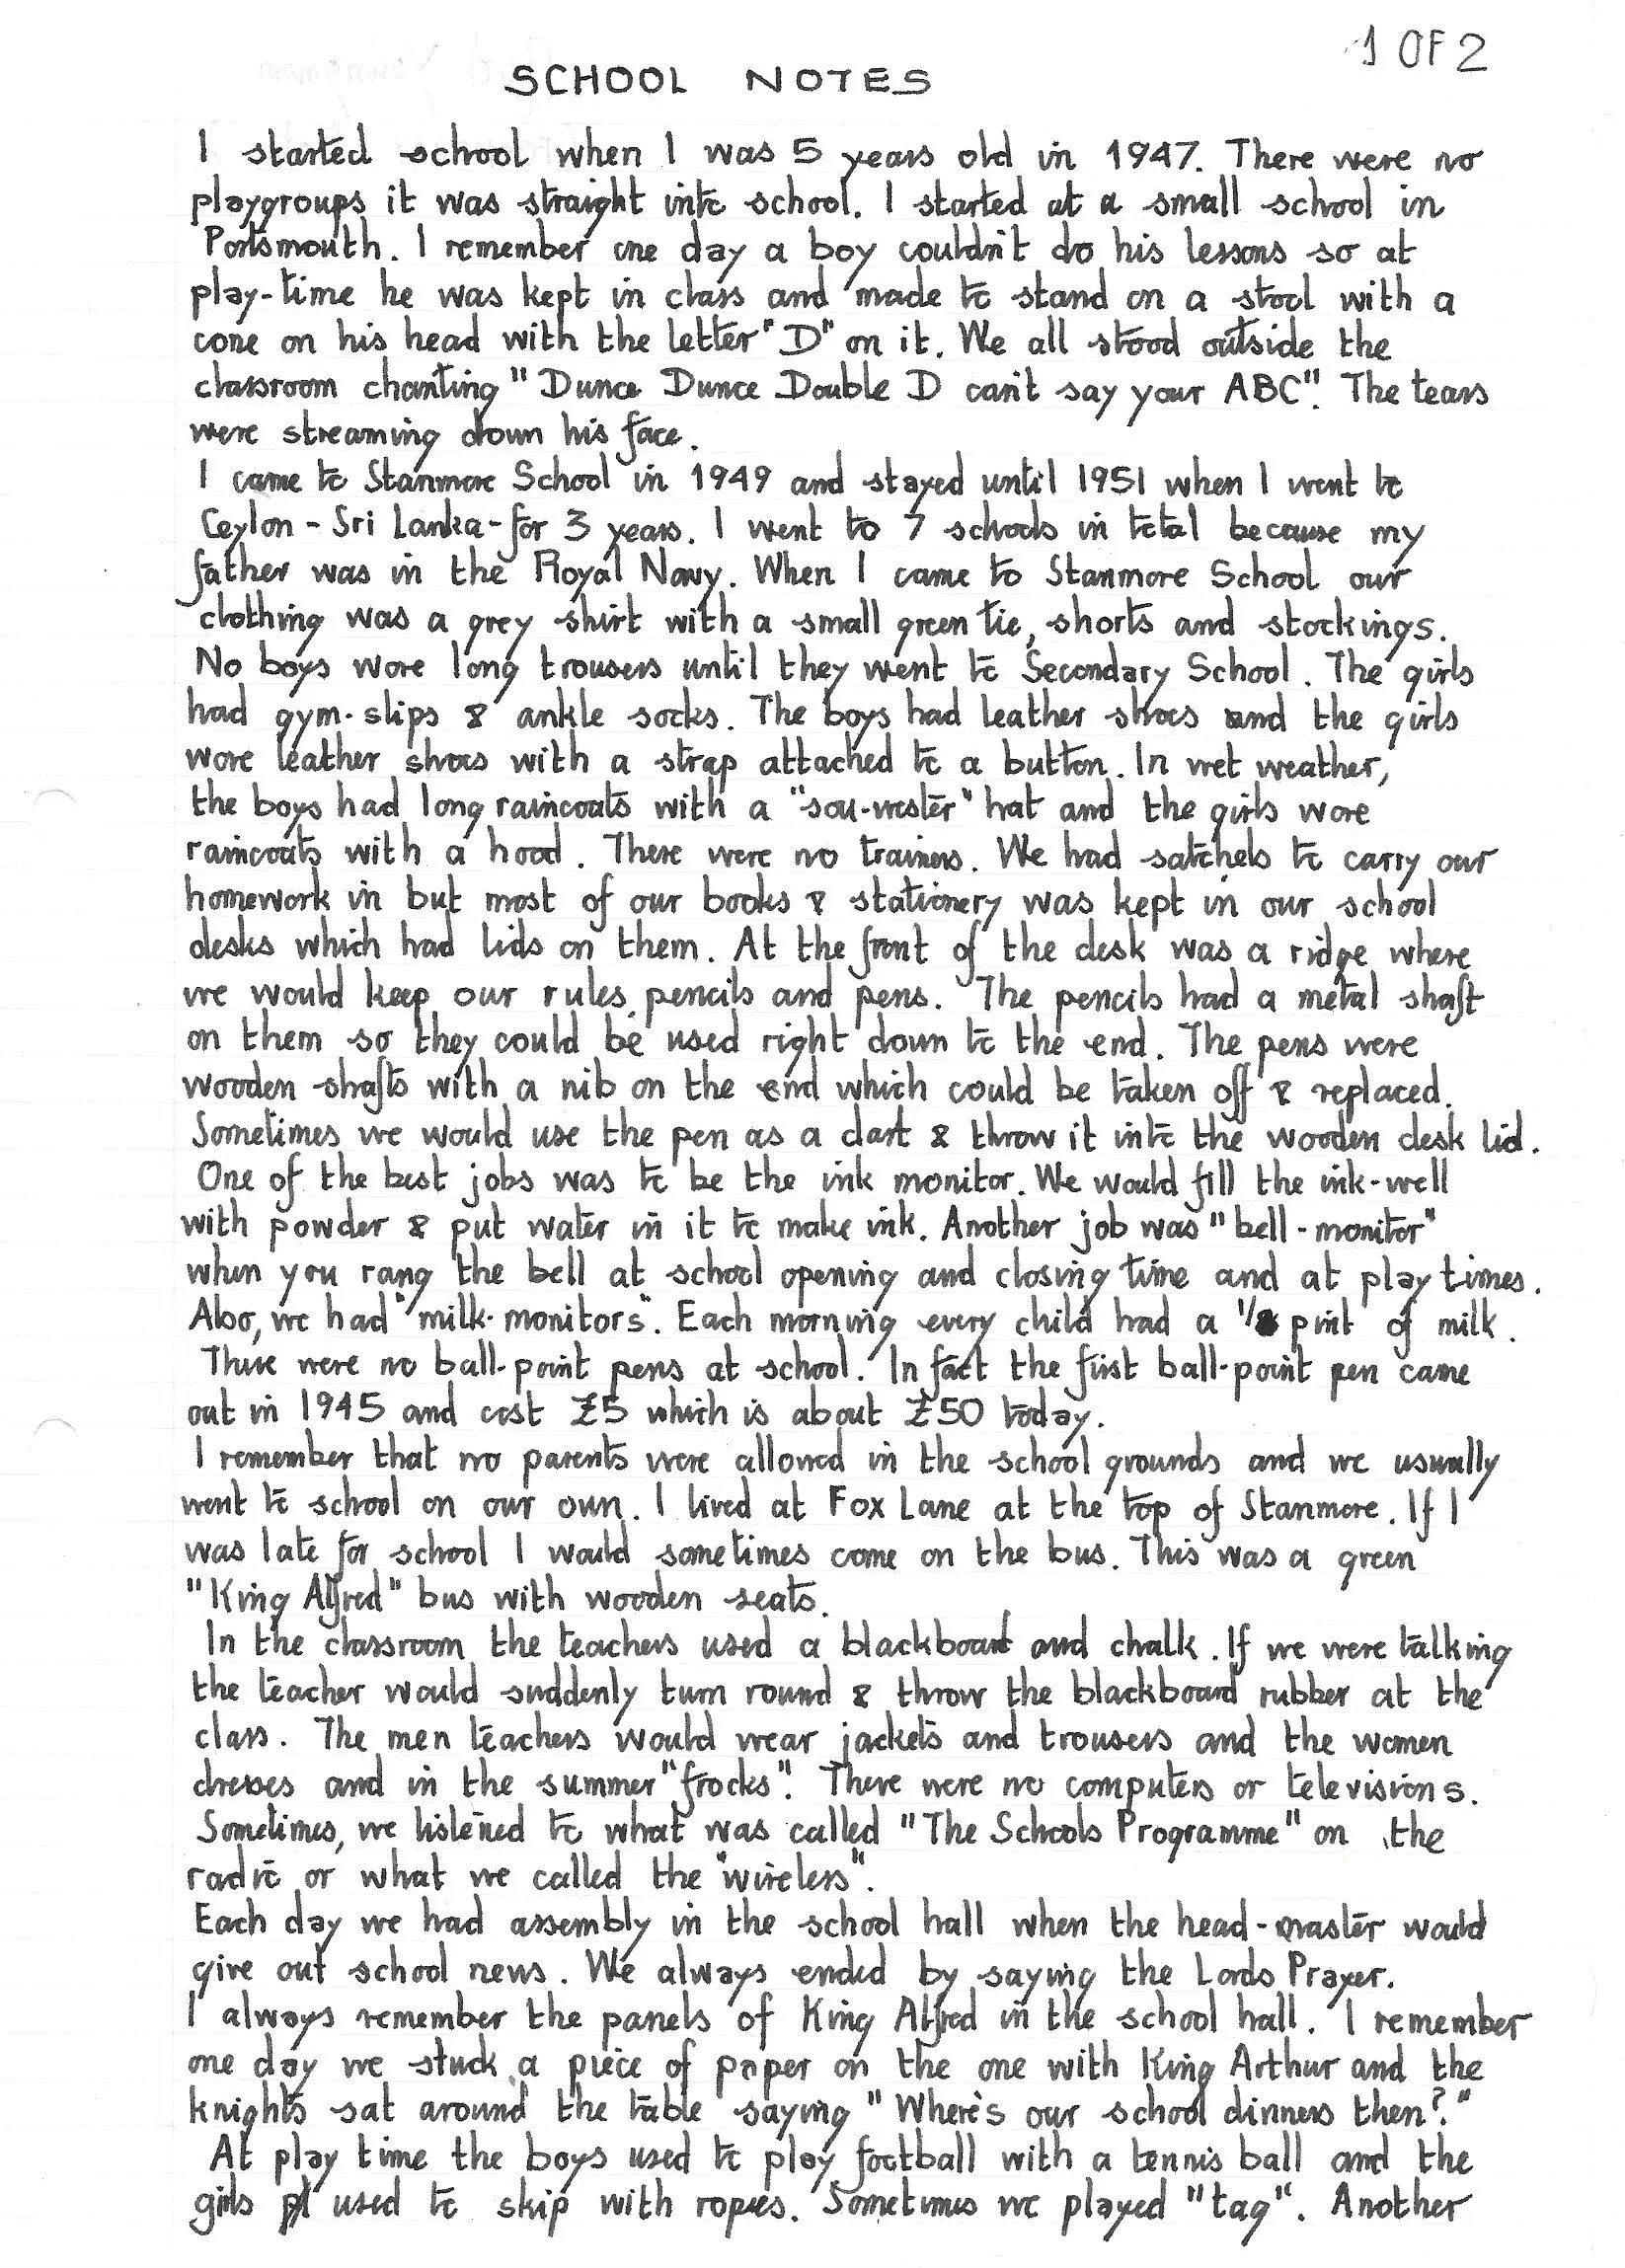 1 OF 2
SCHOOL NOTES
I started school when I was 5 years old in 1947. There were no
playgroups it was straight into school. I started at a small school in
Portsmouth. I remember one day a boy couldn't do his lessons so at
play-time he was kept in class and made to stand on a stool with a
cone on his head with the letter "D" on it. We all stood outside the
classroom chanting "Dunce Dunce Double D can't say your ABC". The tears
were streaming down his face.
I came to Stanmore School in 1949 and stayed until 1951 when I went to
Ceylon - Sri Lanka - for 3 years. I went to 7 schools in total because my
father was in the Royal Navy. When I came to Stanmore School our
clothing was a grey shirt with a small green tie, shorts and stockings.
No boys wore long trousers until they went to Secondary School. The girls
had gym-slips & ankle socks. The boys had leather shoes and the girls
wore leather shoes with a strap attached to a button. In wet weather,
the boys had long raincoats with a "sou-wester" hat and the girls wore
raincoats with a hood. There were no trainers. We had satchels to carry our
homework in but most of our books & stationery was kept in our school
desks which had lids on them. At the front of the desk was a ridge where
we would keep our rules, pencils and pens. The pencils had a metal shaft
on them so they could be used right down to the end. The pens were
wooden shafts with a nib on the end which could be taken off & replaced.
Sometimes we would use the pen as a dart & throw it into the wooden desk lid.
One of the best jobs was to be the ink monitor. We would fill the ink-well
with powder & put water in it to make ink. Another job was "bell-monitor"
when you rang the bell at school opening and closing time and at play times.
Also, we had "milk-monitors". Each morning every child had a pint of milk.
There were no ball-point pens at school. In fact the first ball-point pen came
out in 1945 and cost £5 which is about £50 today.
I remember that no parents were allowed in the school grounds and we usually
went to school on our own. I lived at Fox Lane at the top of Stanmore. If I
was late for school I would sometimes come on the bus. This was a green
"King Alfred" bus with wooden seats.
In the classroom the teachers used a blackboard and chalk. If we were talking
the teacher would suddenly turn round & throw the blackboard rubber at the
class. The men teachers would wear jackets and trousers and the women
dresses and in the summer "frocks". There were no computers or televisions.
Sometimes, we listened to what was called "The Schools Programme" on the
radio or what we called the "wireless".
Each day we had assembly in the school hall when the head-master would
give out school news. We always ended by saying the Lords Prayer.
I always remember the panels of King Alfred in the school hall. I remember
one day we stuck a piece of paper on the one with King Arthur and the
knights sat around the table saying "Where's our school dinners then?"
At play time the boys used to play football with a tennis ball and the
girls used to skip with ropes. Sometimes we played "tag". Another